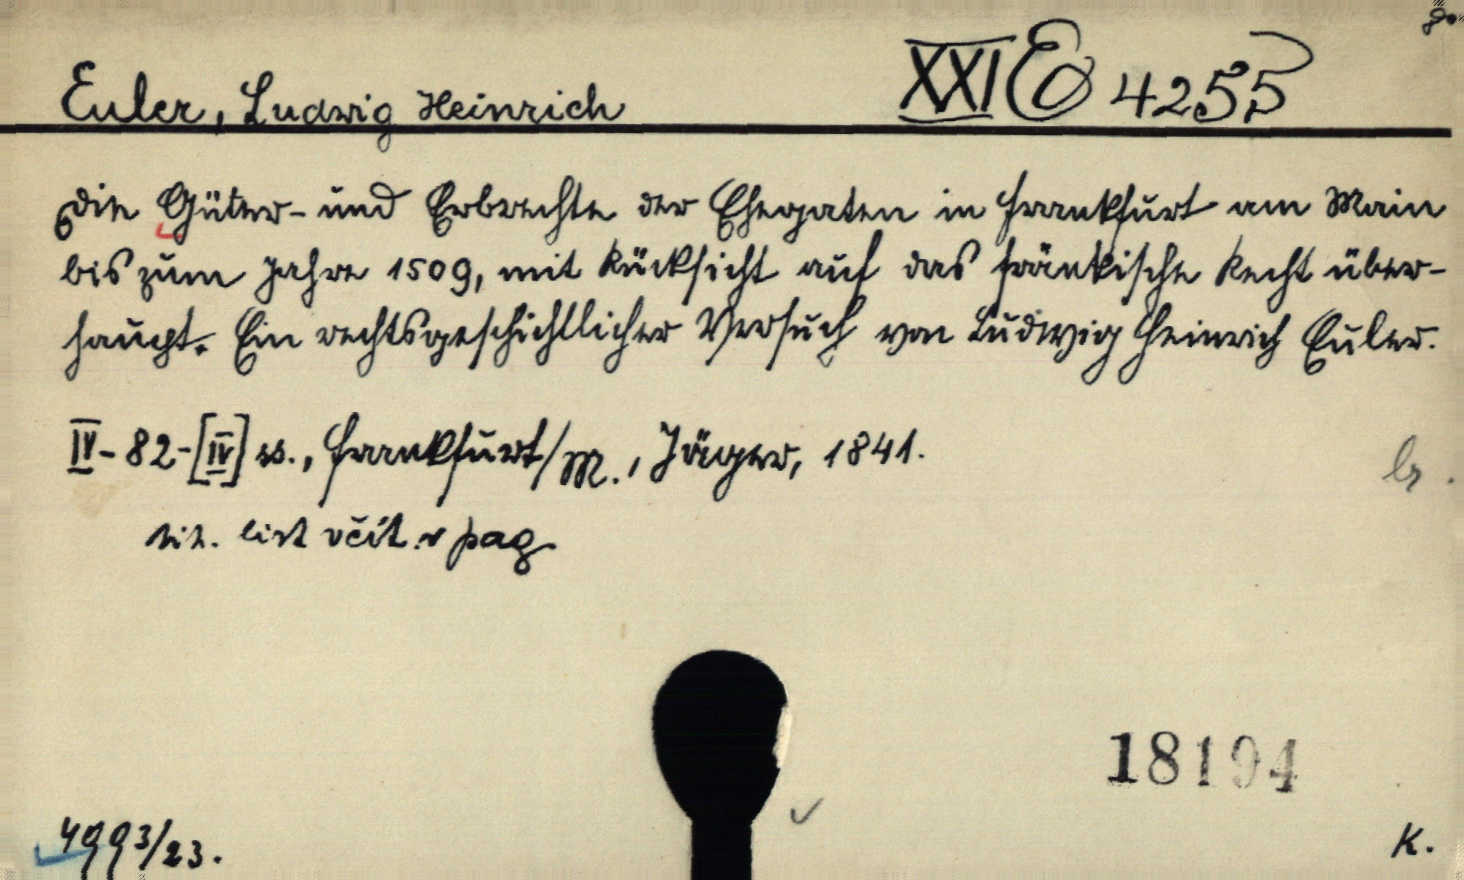 Euler, Ludwig Heinrich XXI E 4255
Die Güter- und Erbrechte der Ehegaten in Frankfurt am Main
bis zum Jahre 1509, mit Rücksicht auf das fränkische Recht über-
haupt. Ein rechtsgeschichtlicher Versuch von Ludwig Heinrich Euler.
IV-82-[IV] ss., Frankfurt/M., Jäger, 1841.
tit. list včít. v pag
18194
4993/23.
K.